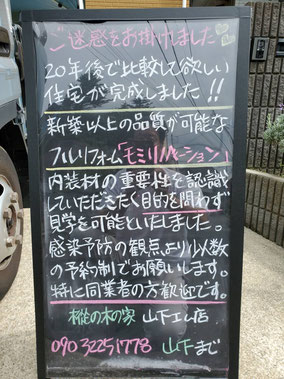 ご迷惑をお掛けました
20年後で比較して欲しい
住宅が完成しました!!
新築以上の品質が可能な
フルリフォーム「モミリノベーション」
内装材の重要性を認識
していただきたく目的を問わず
見学を可能といたしました。
感染予防の観点より少人数
の予約制でお願いします。
特に同業者の方歓迎です。
樅の木の家 山下工ム店
090 3225 1778 山下まじ